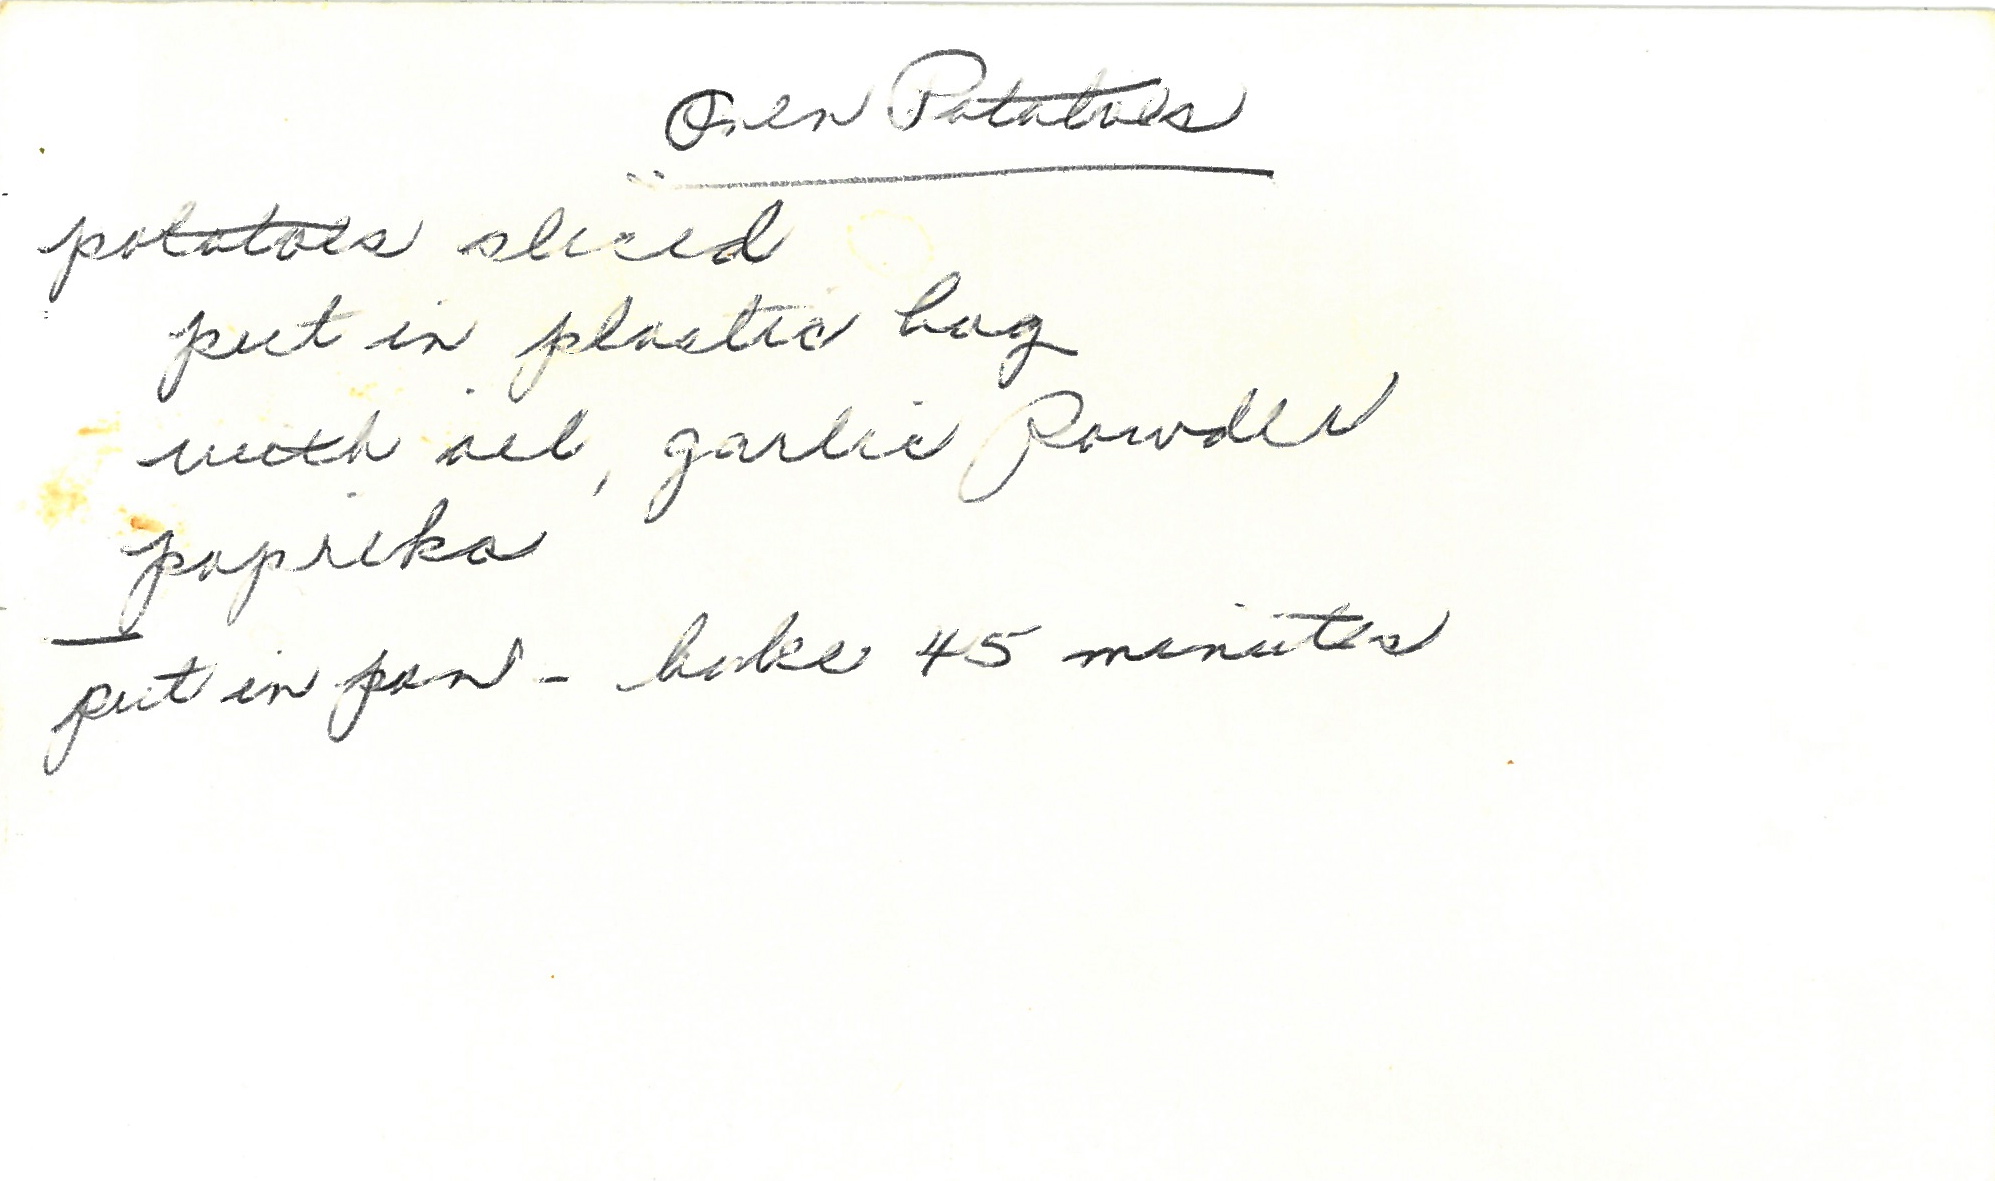 Oven Potatoes
potatoes sliced
put in plastic bag
with oil, garlic Powder
paprika
put in pan - bake 45 minutes